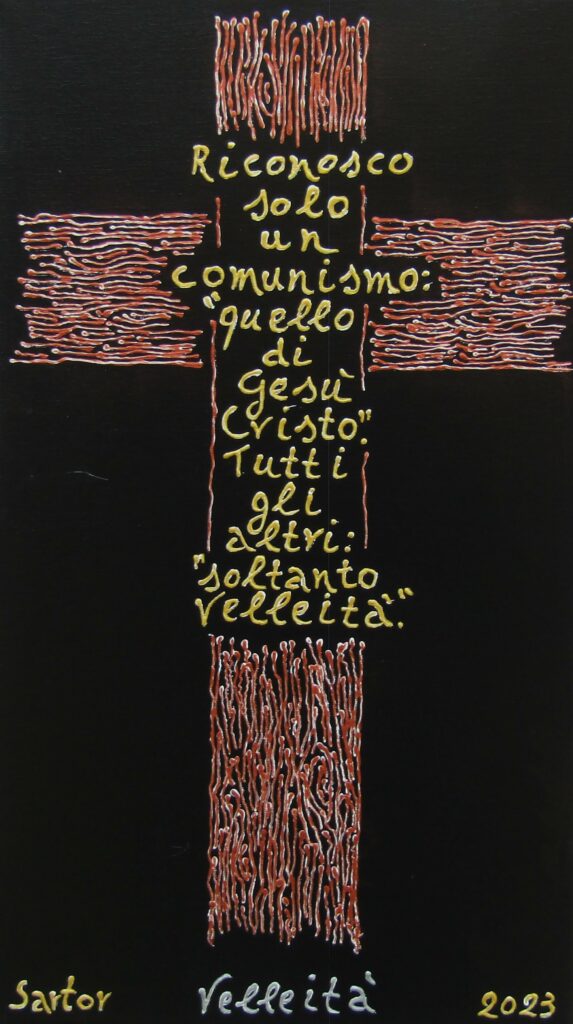 Riconosco
solo
un
comunismo:
"quello
di
Gesù
Cristo".
Tutti
gli
altri:
"soltanto
velleità".
Sartor Velleità 2023